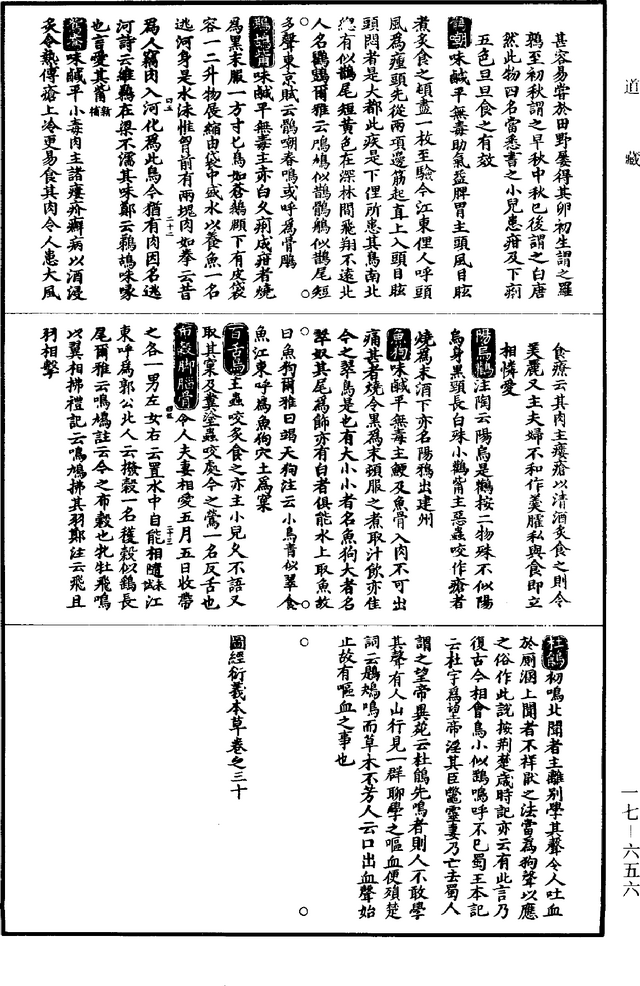 道藏
甚容易嘗於田野屢得其卵初生謂之羅
鶉至初秋謂之早秋中秋已後謂之白唐
然此物四名當悉書之小兒患疳及下痢
五色旦旦食之有效
鶻嘲味鹹平無毒助氣益脾胃主頭風目眩
煮炙食之頓盡一枚至驗今江東俚人呼頭
風為瘇頭先從兩項邊筋起直上入頭目眩
頭悶者是大都此疾是下俚所患其鳥南北
總有似鵲尾短黃色在深林間飛翔不遠北
人名鸜鵒爾雅云鳲鳩似鵲鶻鵃似鵲尾短
多聲東京賦云鶻嘲春鳴或呼為骨鵰
鵜鴣觜味鹹平無毒主赤白久痢成疳者燒
為黑末服一方寸匕鳥如蒼鵝頤下有皮袋
容一二升物展縮由袋中盛水以養魚一名
逃河身是水沫惟胷前有兩塊肉如拳云昔
為人竊肉入河化為此鳥今猶有肉因名逃
河詩云維鵜在梁不濡其味鄭云鵜鴣味喙
也言愛其觜
味鹹平小毒肉主諸瘡疥癬病以酒浸
炙令熱傅瘡上冷更易食其肉令人患大風
食療云其肉主瘻瘡以清酒炙食之則令
美麗又主夫婦不和作羮臛私與食即立
相憐愛
陽烏鸛注陶云陽烏是鸛按二物殊不似陽
烏身黑頸長白殊小鸛觜主惡蟲咬作瘡者
燒為末酒下亦名陽鴉出建州
魚狗味鹹平無毒主鯁及魚骨入肉不可出
痛甚者燒令黑為末頓服之煮取汁飲亦佳
今之翠鳥是也有大小小者名魚狗大者名
翠奴其尾為飾亦有白者俱能水上取魚故
曰魚狗爾雅曰竭天狗注云小鳥青似翠食
魚江東呼為魚狗穴土為窠
百舌鳥主蟲咬炙食之亦主小兒久不語又
取其窠及糞塗蟲咬處今之鶯一名反舌也
布穀脚腦骨令人夫妻相愛五月五日收帶
之各一男左女右云置水中自能相隨江
東呼為郭公北人云撥穀一名穫穀似鷂長
尾爾雅云鳲鳩註云今之布穀也牝牡飛鳴
以翼相拂禮記云鳴鳩拂其羽鄭注云飛且
羽相擊
杜鵑初鳴先聞者主離別學其聲令人吐血
於厠溷上聞者不祥厭之法當為狗聲以應
之俗作此說按荆楚歲時記亦云有此言乃
復古今相會鳥小似鷂鳴呼不已蜀王本記
云杜宇為望帝淫其臣鼈靈妻乃亡去蜀人
謂之望帝異苑云杜鵑先鳴者則人不敢學
其聲有人山行見一群聊學之嘔血便殞楚
詞云鶗鴂鳴而草木不芳人云口出血聲始
止故有嘔血之事也
圖經衍義本草卷之三十
一七—六五六